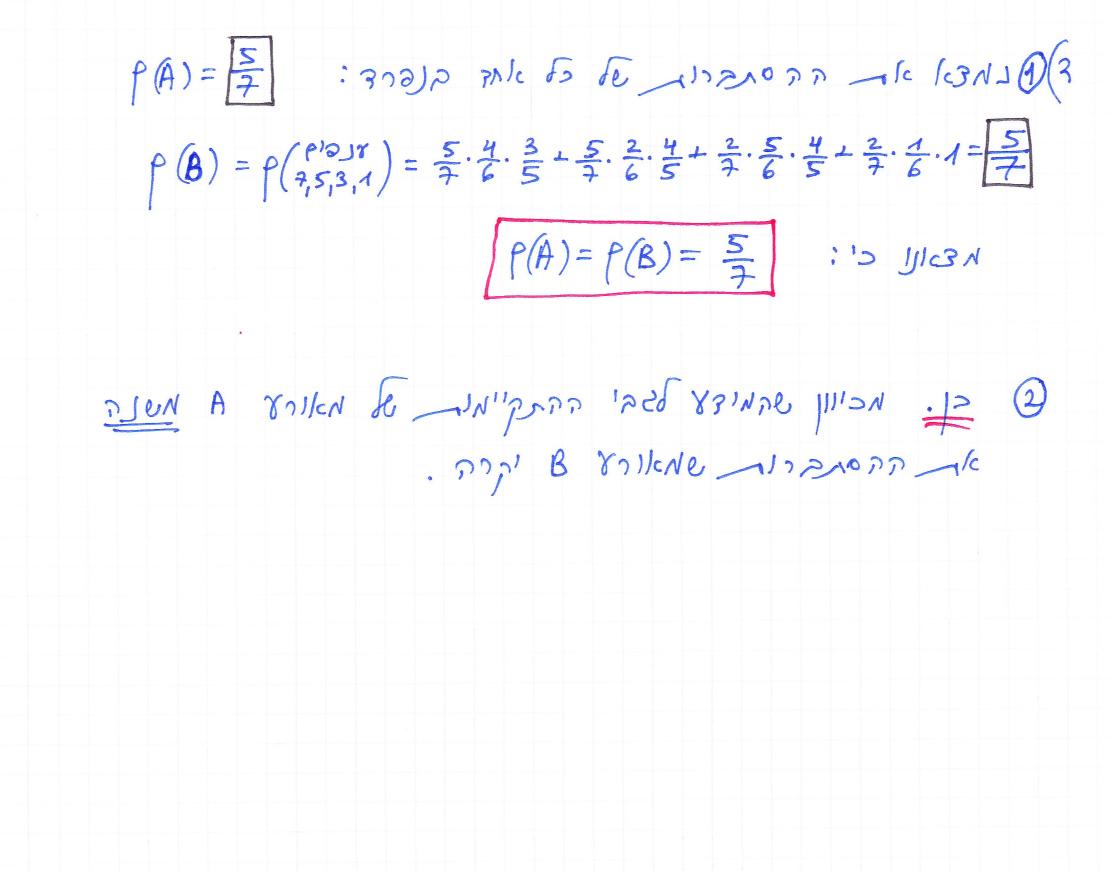 ד) ① נמצא את ההסתברות של כל אחד בנפרד: P(A) = 5/7
P(B) = P(ענפים 7,5,3,1) = 5/7 · 4/6 · 3/5 + 5/7 · 2/6 · 4/5 + 2/7 · 5/6 · 4/5 + 2/7 · 1/6 · 1 = 5/7
מצאנו כי: P(A) = P(B) = 5/7
② כן. מכיוון שהמידע לגבי ההתקיימות של מאורע A משנה
את ההסתברות שמאורע B יקרה.